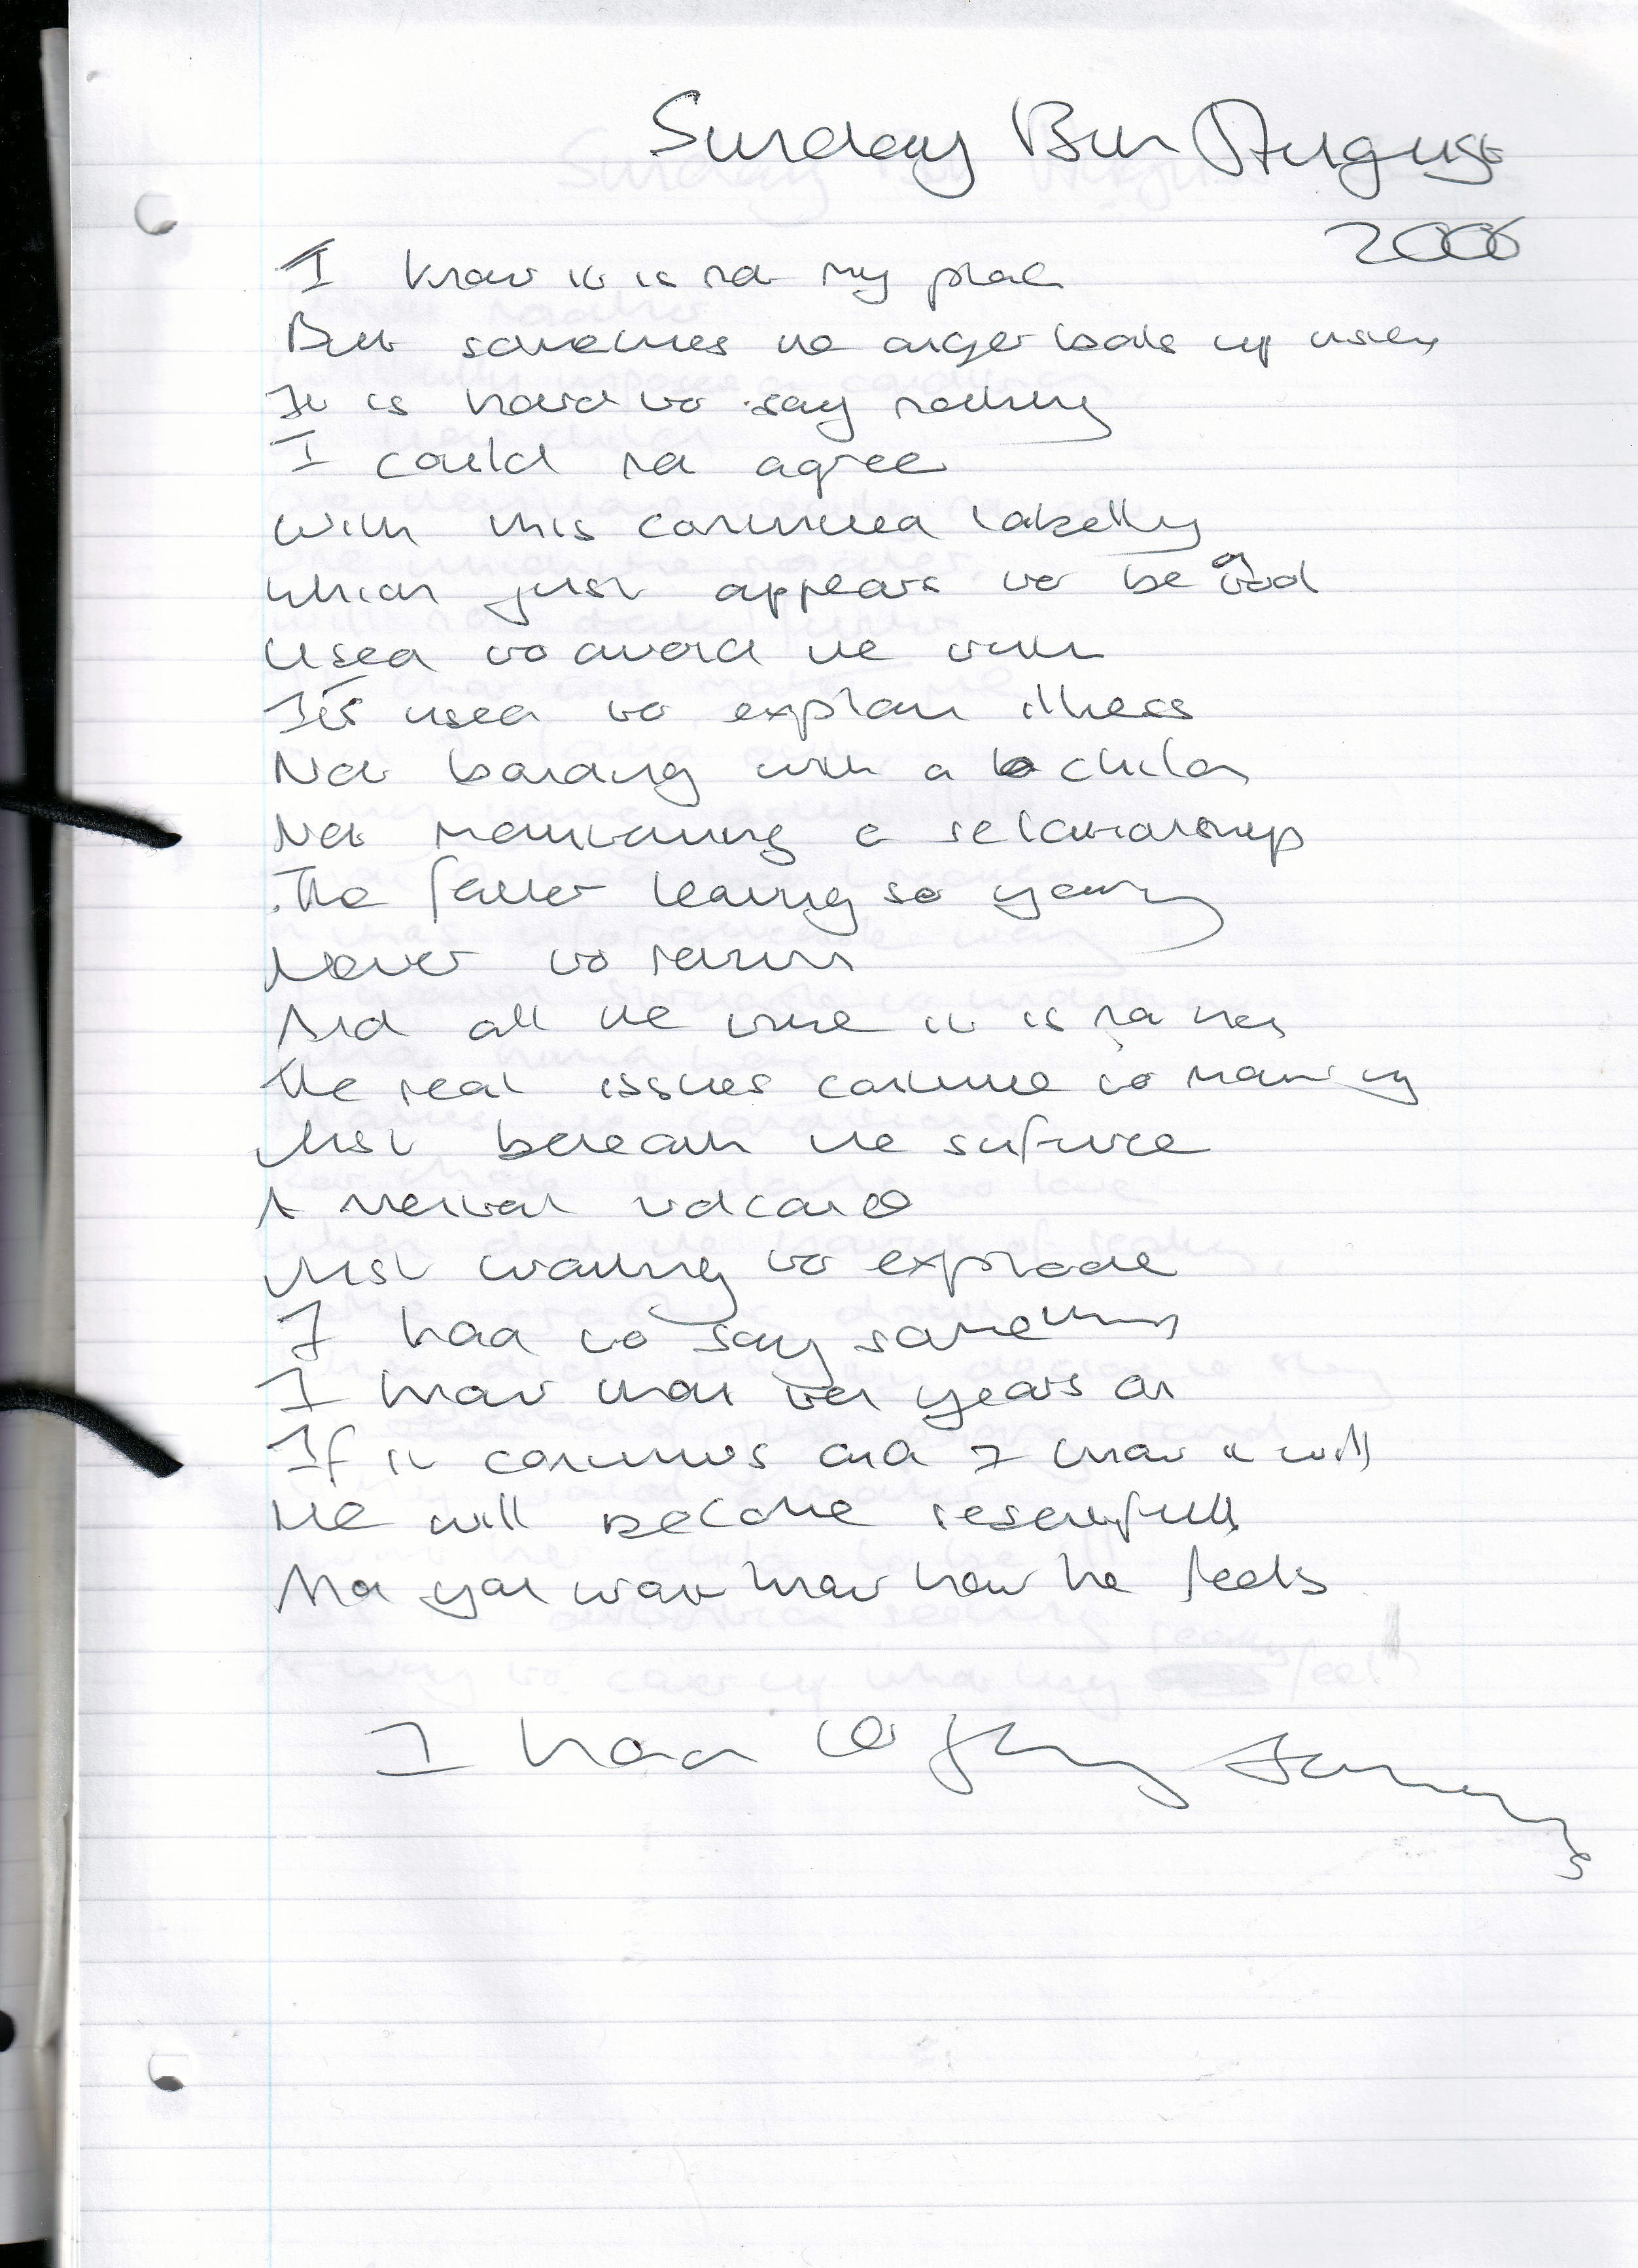 Sunday 13th August
2006
I know it is not my place
But sometimes the anger boils up inside
It is hard to say nothing
I could not agree
with this continued labelling
which just appears to be a tool
used to avoid the truth
Its used to explain illness
Not bonding with a child
Not maintaining a relationship
The father leaving so young
Never to return
And all the time it is
the real issues continue to
Just beneath the surface
A mental volcano
Just waiting to explode
I had to say something
I know that ten years on
If it continues and I know it will
He will become resentfull
And you wont know how he feels
I had to say